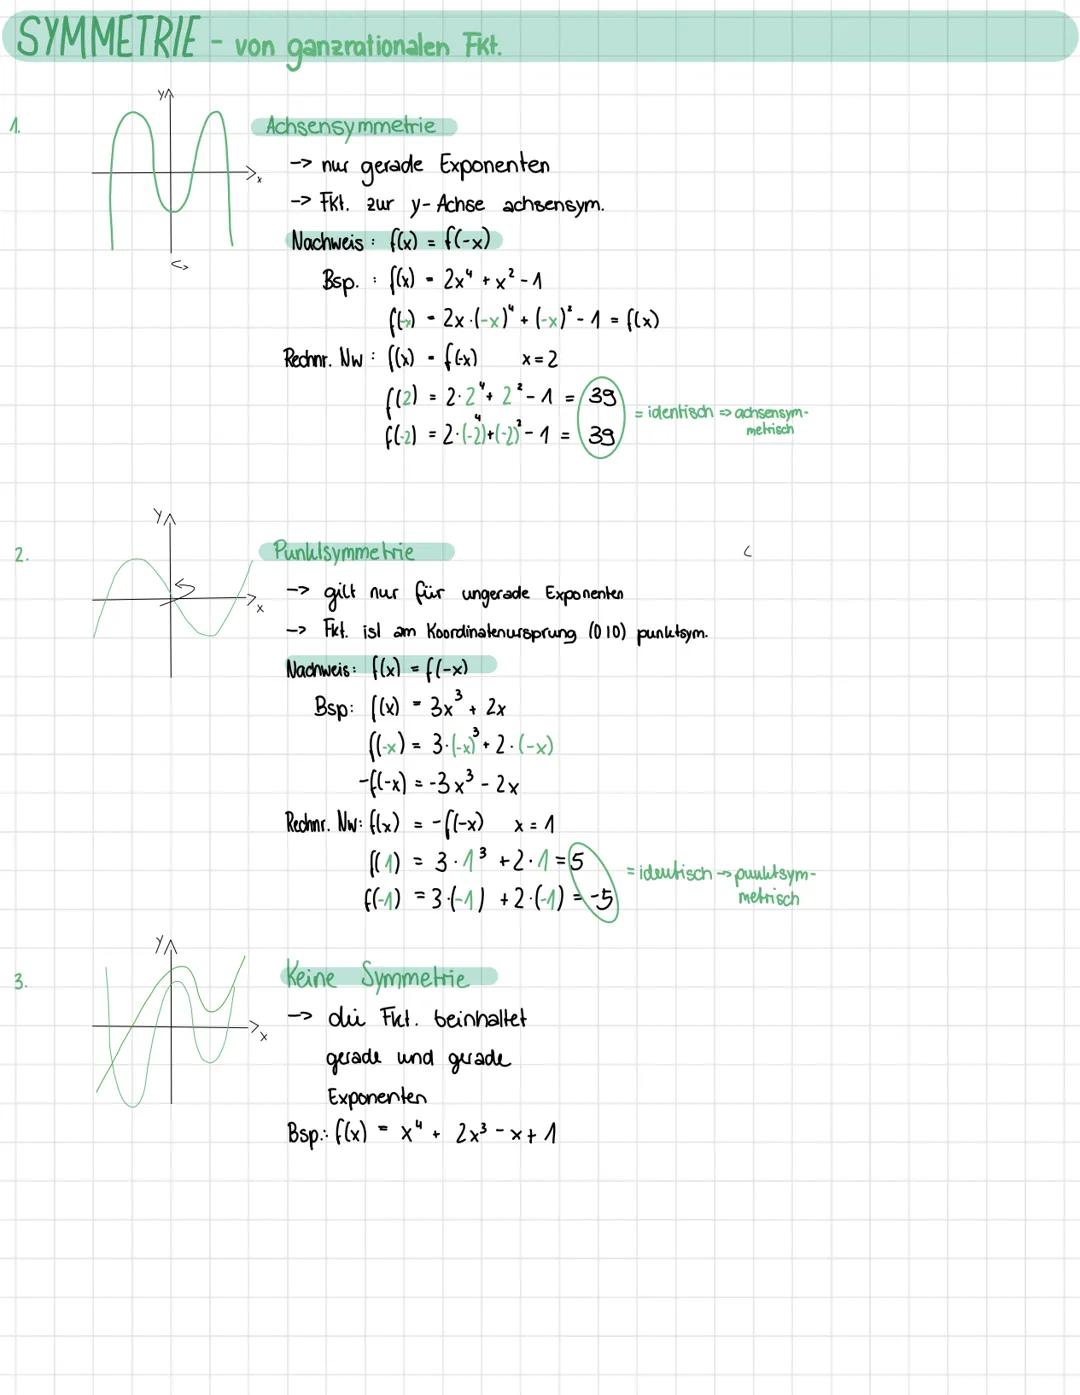 SYMMETRIE - von ganzrationalen Fkt.
y
x
1.
Achsensymmetrie
-> nur gerade Exponenten
-> Fkt. zur y-Achse achsensym.
Nachweis: f(x) = f(-x)
Bsp. : f(x) = 2x⁴ + x² - 1
f(-x) = 2x·(-x)⁴ + (-x)² - 1 = f(x)
Rechnr. Nw : f(x) = f(-x) x = 2
f(2) = 2·2⁴ + 2² - 1 = 39
f(-2) = 2·(-2)⁴+(-2)² - 1 = 39
= identisch => achsensym-
metrisch
y
x
2.
Punktsymmetrie
-> gilt nur für ungerade Exponenten
-> Fkt. ist am Koordinatenursprung (0|0) punktsym.
Nachweis: f(x) = f(-x)
Bsp: f(x) = 3x³ + 2x
f(-x) = 3·(-x)³ + 2·(-x)
-f(-x) = -3x³ - 2x
Rechnr. Nw: f(x) = -f(-x) x = 1
f(1) = 3·1³ + 2·1 = 5
f(-1) = 3·(-1) + 2·(-1) = -5
= identisch -> punktsym-
metrisch
y
x
3.
Keine Symmetrie
-> die Fkt. beinhaltet
gerade und gerade
Exponenten
Bsp.: f(x) = x⁴ + 2x³ - x + 1